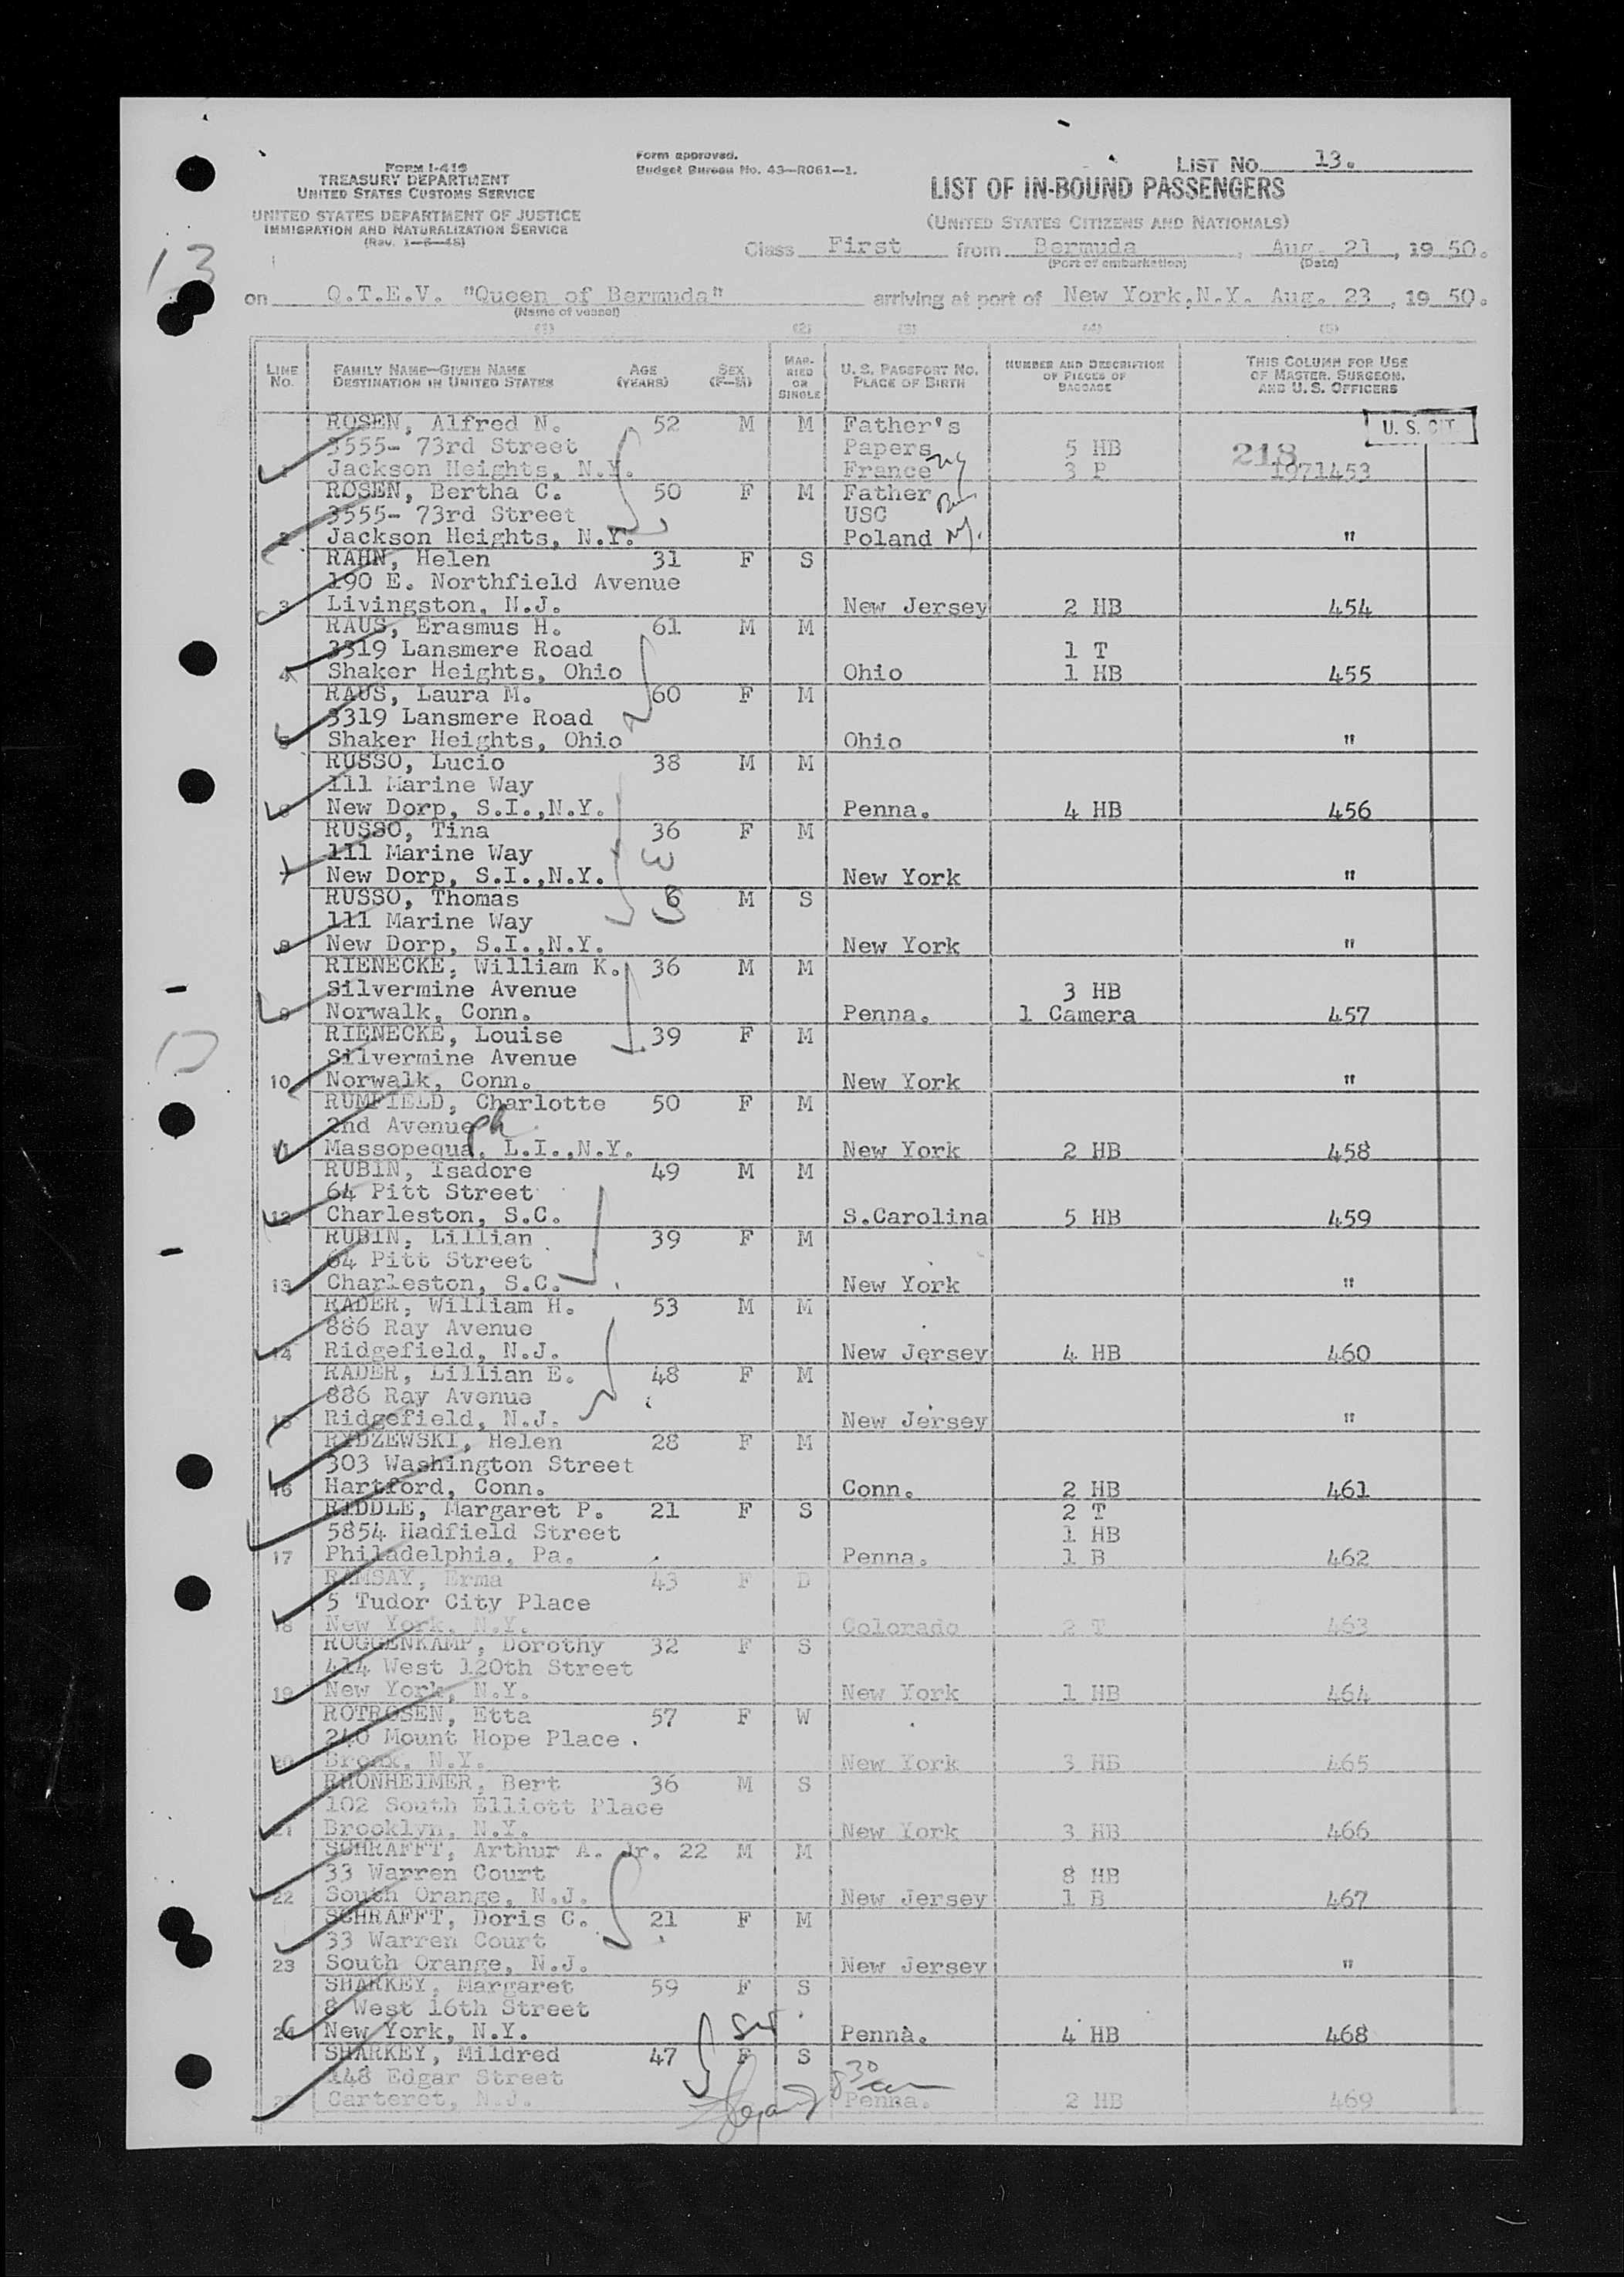 LIST NO. 13.
FORM I-415
TREASURY DEPARTMENT
UNITED STATES CUSTOMS SERVICE
UNITED STATES DEPARTMENT OF JUSTICE
IMMIGRATION AND NATURALIZATION SERVICE
(Rev. 1-6-48)
Form approved.
Budget Bureau No. 43-R061-1.
LIST OF IN-BOUND PASSENGERS
(UNITED STATES CITIZENS AND NATIONALS)
13
Class First from Bermuda, Aug. 21, 19 50.
(Port of embarkation) (Date)
on Q.T.E.V. "Queen of Bermuda" arriving at port of New York,N.Y. Aug. 23, 19 50.
(Name of vessel)
(1) (2) (3) (4) (5)
LINE NO. FAMILY NAME—GIVEN NAME DESTINATION IN UNITED STATES AGE (YEARS) SEX (F-M) MARRIED OR SINGLE U. S. PASSPORT NO. PLACE OF BIRTH NUMBER AND DESCRIPTION OF PIECES OF BAGGAGE THIS COLUMN FOR USE OF MASTER, SURGEON, AND U. S. OFFICERS
ROSEN, Alfred N. 52 M M Father's U. S. CIT
3555- 73rd Street Papers 5 HB 218
1 Jackson Heights, N.Y. France NY 3 P 1971453
ROSEN, Bertha C. 50 F M Father
3555- 73rd Street USC
2 Jackson Heights, N.Y. Poland "
RAHN, Helen 31 F S
190 E. Northfield Avenue
3 Livingston, N.J. New Jersey 2 HB 454
RAUS, Erasmus H. 61 M M
3319 Lansmere Road 1 T
4 Shaker Heights, Ohio Ohio 1 HB 455
RAUS, Laura M. 60 F M
3319 Lansmere Road
5 Shaker Heights, Ohio Ohio "
RUSSO, Lucio 38 M M
111 Marine Way
6 New Dorp, S.I.,N.Y. Penna. 4 HB 456
RUSSO, Tina 36 F M
111 Marine Way 3
7 New Dorp, S.I.,N.Y. New York "
RUSSO, Thomas 6 M S
111 Marine Way
8 New Dorp, S.I.,N.Y. New York "
RIENECKE, William K. 36 M M
Silvermine Avenue 3 HB
9 Norwalk, Conn. Penna. 1 Camera 457
RIENECKE, Louise 39 F M
Silvermine Avenue
10 Norwalk, Conn. New York "
RUMFIELD, Charlotte 50 F M
2nd Avenue
11 Massopequa, L.I.,N.Y. New York 2 HB 458
RUBIN, Isadore 49 M M
64 Pitt Street
12 Charleston, S.C. S.Carolina 5 HB 459
RUBIN, Lillian 39 F M
64 Pitt Street
13 Charleston, S.C. New York "
RADER, William H. 53 M M
886 Ray Avenue
14 Ridgefield, N.J. New Jersey 4 HB 460
RADER, Lillian E. 48 F M
886 Ray Avenue
15 Ridgefield, N.J. New Jersey "
RYDZEWSKI, Helen 28 F M
303 Washington Street
16 Hartford, Conn. Conn. 2 HB 461
RIDDLE, Margaret P. 21 F S 2 T
5854 Hadfield Street 1 HB
17 Philadelphia, Pa. Penna. 1 B 462
RAMSAY, Erma 43 F D
5 Tudor City Place
18 New York, N.Y. Colorado 2 T 463
ROGGENKAMP, Dorothy 32 F S
414 West 120th Street
19 New York, N.Y. New York 1 HB 464
ROTROSEN, Etta 57 F W
240 Mount Hope Place
20 Bronx, N.Y. New York 3 HB 465
RHONHEIMER, Bert 36 M S
102 South Elliott Place
21 Brooklyn, N.Y. New York 3 HB 466
SCHRAFFT, Arthur A. Jr. 22 M M
33 Warren Court 8 HB
22 South Orange, N.J. New Jersey 1 B 467
SCHRAFFT, Doris C. 21 F M
33 Warren Court
23 South Orange, N.J. New Jersey "
SHARKEY, Margaret 59 F S
8 West 16th Street
24 New York, N.Y. Penna. 4 HB 468
SHARKEY, Mildred 47 F S
148 Edgar Street
25 Carteret, N.J. Penna. 2 HB 469